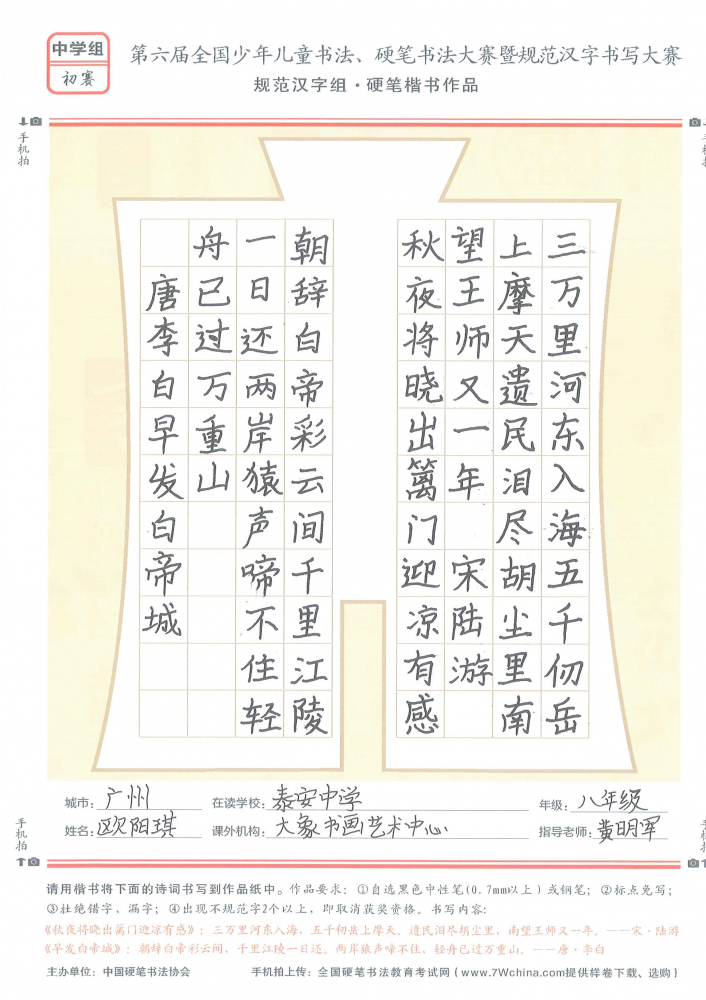 中学组
初赛
第六届全国少年儿童书法、硬笔书法大赛暨规范汉字书写大赛
规范汉字组·硬笔楷书作品
手机拍
手机拍
三万里河东入海五千仞岳
上摩天遗民泪尽胡尘里南
望王师又一年 宋陆游
秋夜将晓出篱门迎凉有感
朝辞白帝彩云间千里江陵
一日还两岸猿声啼不住轻
舟已过万重山
唐李白早发白帝城
城市：广州 在读学校：泰安中学 年级：八年级
姓名：欧阳琪 课外机构：大象书画艺术中心 指导老师：黄明军
手机拍
手机拍
请用楷书将下面的诗词书写到作品纸中。作品要求：①自选黑色中性笔(0.7mm以上)或钢笔；②标点免写；
③杜绝错字、漏字；④出现不规范字2个以上，即取消获奖资格。书写内容：
《秋夜将晓出篱门迎凉有感》：三万里河东入海，五千仞岳上摩天。遗民泪尽胡尘里，南望王师又一年。——宋·陆游
《早发白帝城》：朝辞白帝彩云间，千里江陵一日还。两岸猿声啼不住，轻舟已过万重山。——唐·李白
主办单位：中国硬笔书法协会 手机拍上传：全国硬笔书法教育考试网（www.7Wchina.com提供样卷下载、选购）